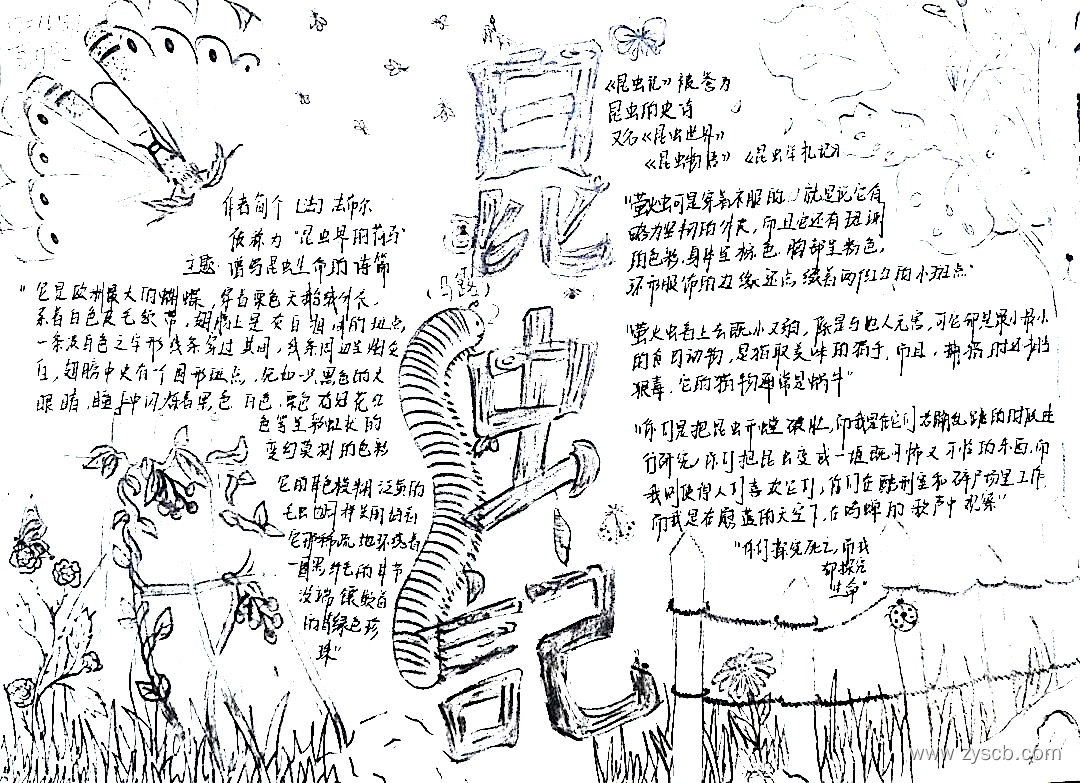 昆虫记
《昆虫记》被誉为
昆虫的史诗
又名《昆虫世界》
《昆虫物语》《昆虫学札记》
作者简介 [法] 法布尔
被称为"昆虫界的荷马"
主题：谱写昆虫生命的诗篇
"它是欧洲最大的蝴蝶，穿着栗色天鹅绒外衣，
系着白色皮毛领带，翅膀上是灰白相间的斑点，
一条淡白色之字形线条穿过其间，线条周边呈烟灰
白，翅膀中央有一个圆形斑点，宛如一只黑色的大
眼睛，瞳仁中闪烁着黑色、白色、栗色
色等呈彩虹状的
变幻莫测的色彩
它的颜色模糊泛黄的
毛虫也同样美丽
它那稀疏地环绕着
一圈黑纤毛的体节
没端镶嵌着
的青绿色珍
珠"
（马路）
"萤火虫可是穿着衣服的，就是说它有
略为坚韧的外表，而且它还有斑斓
的色彩，身体呈棕色，胸部呈粉色，
环形服饰的边缘还点缀着两红红的小斑点"
"萤火虫看上去既小又弱，像是与他人无害，可它却是最小最小
的食肉动物，是猎取美味的猎手，而且，捕猎时还相当
狠毒，它的猎物通常是蜗牛"
"你们是把昆虫开膛破肚，而我是在它们
行研究，你们把昆虫变成一堆既可怖又可怜的东西，而
我则使得人们喜欢它们，你们在酷刑室和碎尸场里工作
而我是在蔚蓝的天空下，在鸣蝉的歌声中观察"
"你们探究死亡，而我
却探究
生命"
www.zyscb.com